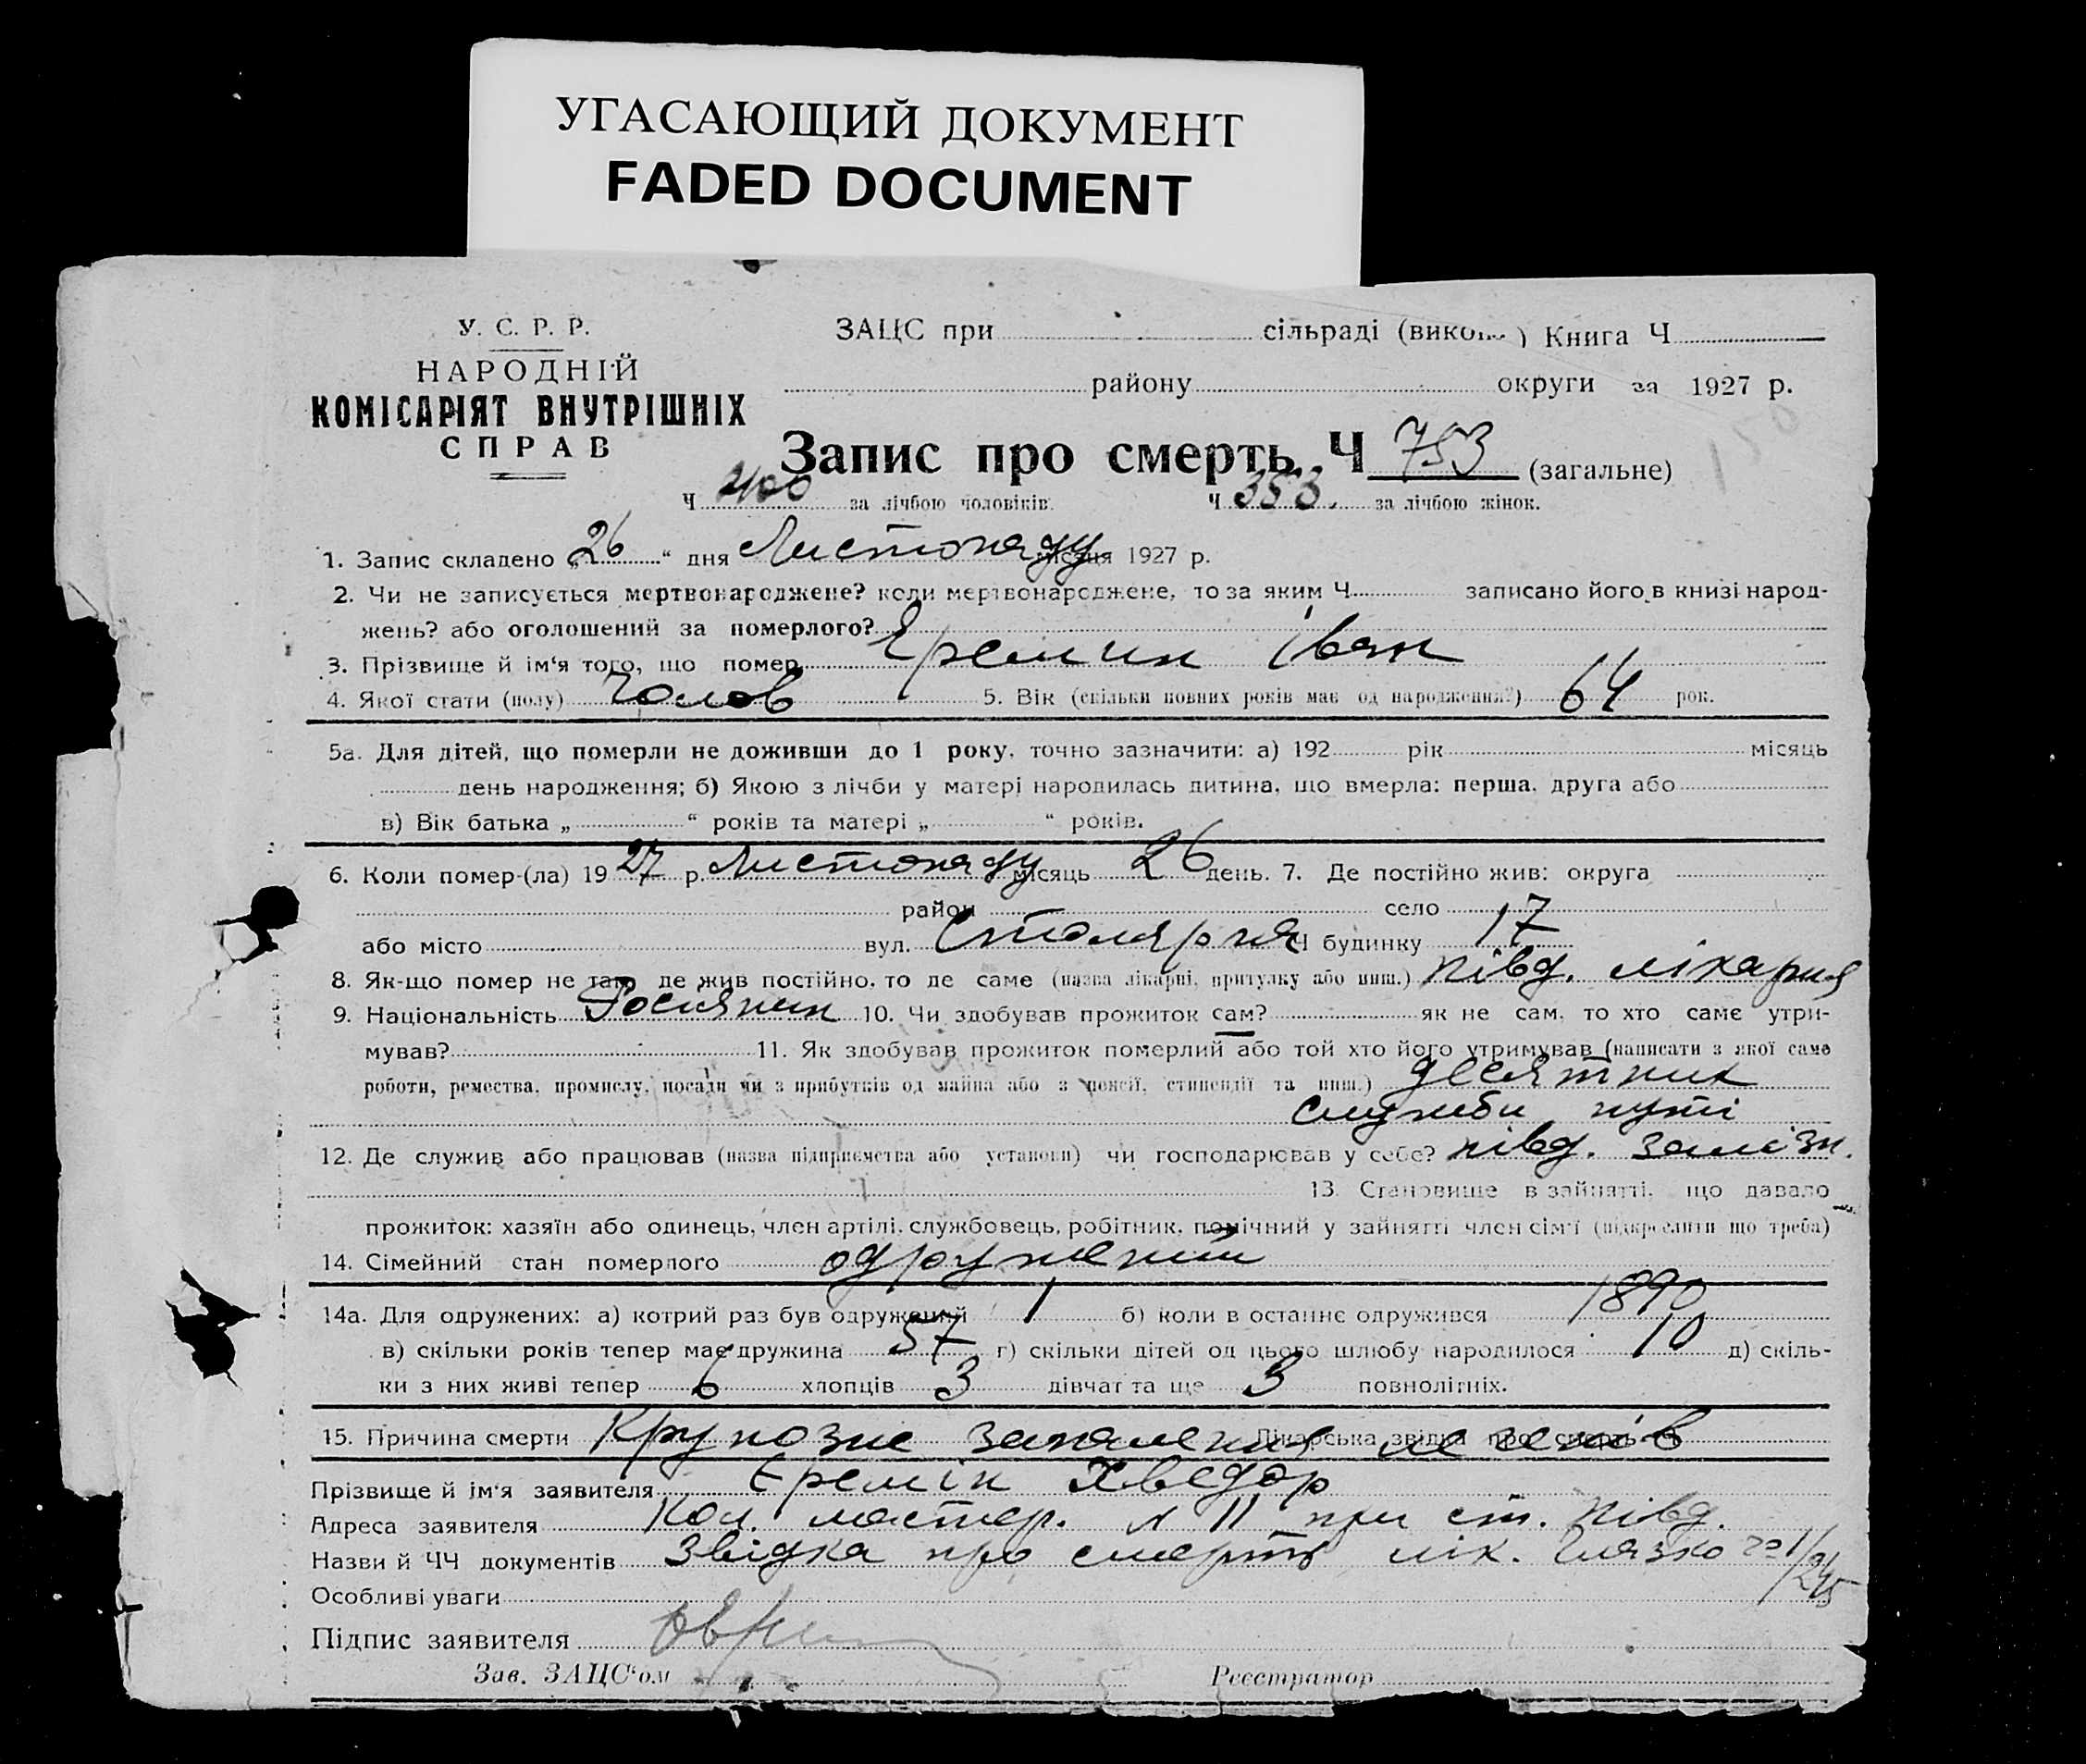 УГАСАЮЩИЙ ДОКУМЕНТ
FADED DOCUMENT
У. С. Р. Р.
НАРОДНІЙ
КОМІСАРІЯТ ВНУТРІШНІХ
СПРАВ
ЗАЦС при сільраді (викон. ) Книга Ч
району округи за 1927 р.
Запис про смерть Ч 753 (загальне)
Ч 400 за лічбою чоловіків. Ч 353. за лічбою жінок.
1. Запис складено „26“ дня Листопаду місяця 1927 р.
2. Чи не записується мертвонароджене? коли мертвонароджене, то за яким Ч записано його в книзі народ-
жень? або оголошений за померлого?
3. Прізвище й ім‘я того, що помер Еремин Іван
4. Якої стати (полу) Чолов 5. Вік (скільки повних років має од народження?) 64 рок.
5а. Для дітей, що померли не доживши до 1 року, точно зазначити: а) 192 рік місяць
день народження; б) Якою з лічби у матері народилась дитина, що вмерла: перша, друга або
в) Вік батька „ “ років та матері „ “ років.
6. Коли помер-(ла) 1927 р. Листопаду місяць 26 день. 7. Де постійно жив: округа
район село
або місто вул. Столярня Ч будинку 17
8. Як-що помер не там, де жив постійно, то де саме (назва лікарні, притулку або инш.) Півд. лікарня
9. Національність Росіянин 10. Чи здобував прожиток сам? як не сам, то хто саме утри-
мував? 11. Як здобував прожиток померлий або той хто його утримував (написати з якої саме
роботи, ремества, промислу, посади чи з прибутків од майна або з пенсії, стипендії та инш.) десятник
служби путі
12. Де служив або працював (назва підприємства або установи) чи господарював у себе? півд. залізн.
13. Становище в зайнятті, що давало
прожиток: хазяїн або одинець, член артілі, службовець, робітник, помічний у зайнятті член сім‘ї (підкреслити що треба)
14. Сімейний стан померлого одружений
14а. Для одружених: а) котрий раз був одружений 1 б) коли в останнє одружився 1890
в) скільки років тепер має дружина 57 г) скільки дітей од цього шлюбу народилося 10 д) скіль-
ки з них живі тепер 6 хлопців 3 дівчат та ще 3 повнолітніх.
15. Причина смерти Крупозне запалення легенів Лікарська звідка про смерть
Прізвище й ім‘я заявителя Еремін Хведор
Адреса заявителя Кол. мастер. № 11 при ст. Півд.
Назви й ЧЧ документів Звідка про смерть лік.
Особливі уваги
Підпис заявителя
Зав. ЗАЦС‘ом Реєстратор